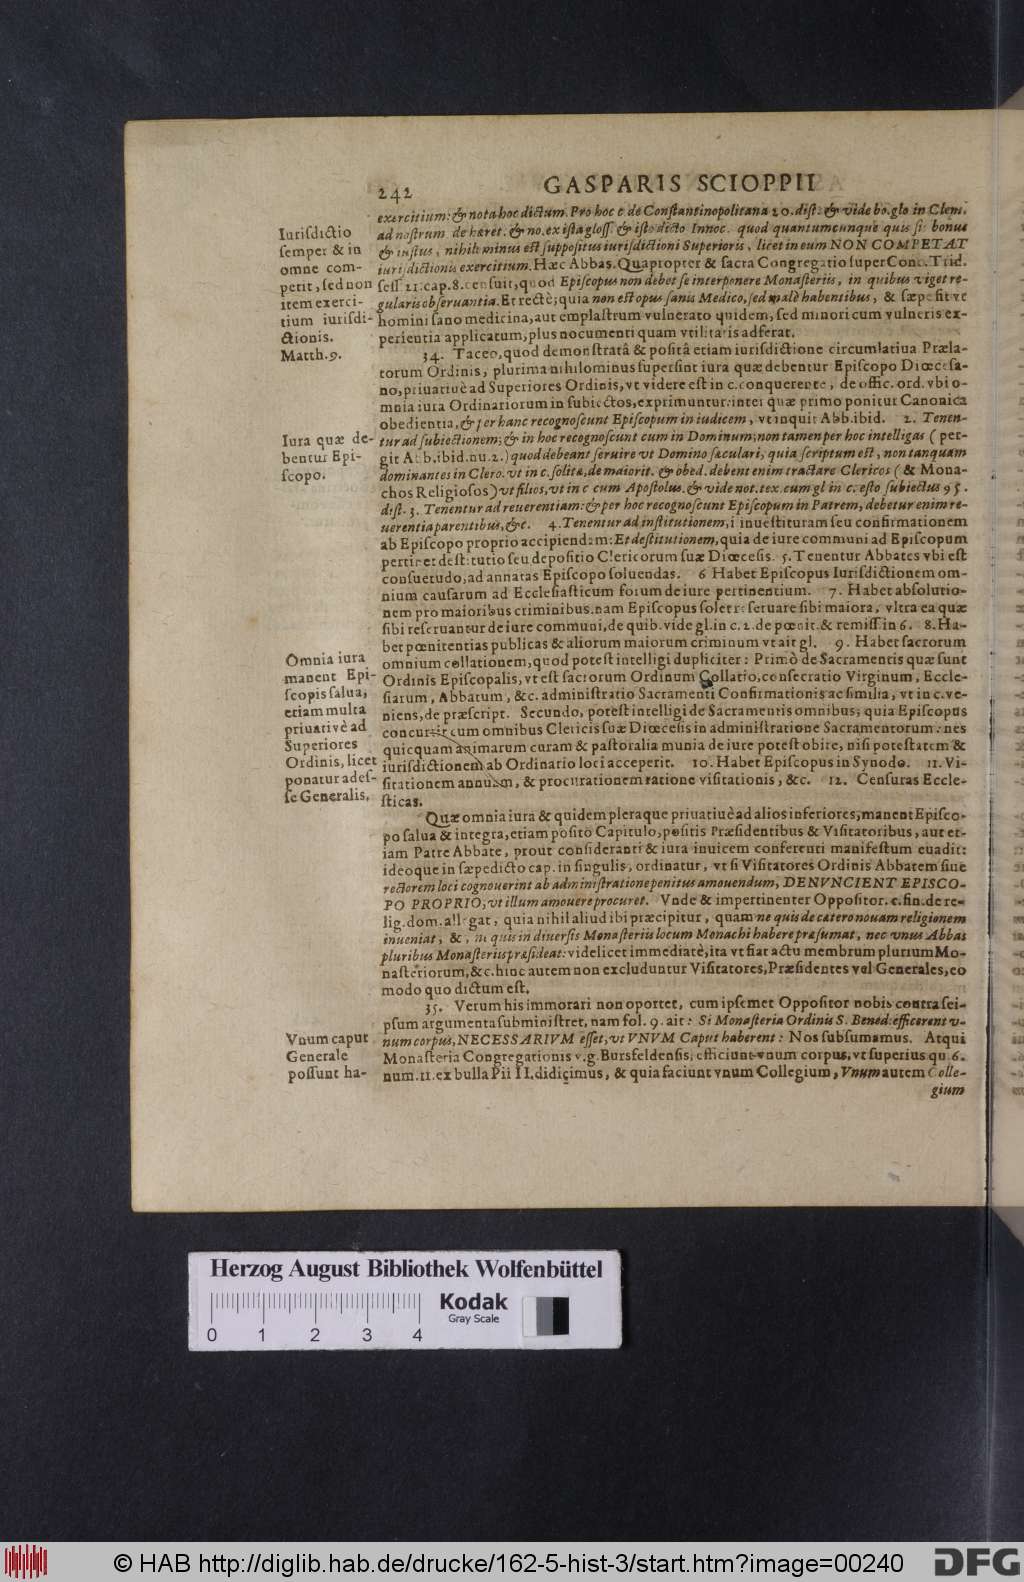 242 GASPARIS SCIOPPII
exercitium: & nota hoc dictum. Pro hoc c. de Constantinopolitana 20. dist: & vide bo. glo in Clem.
ad nostrum de hæret. & no. ex ista gloss. & isto dicto Innoc. quod quantumcunque quis sit bonus
& iustus, nihilominus est suppositus iurisdictioni Superioris, licet in eum NON COMPETAT
iurisdictionis exercitium. Hæc Abbas. Quapropter & sacra Congregatio super Conc. Trid.
sess 21. cap. 8. censuit, quod Episcopus non debet se interponere Monasteriis, in quibus viget re-
gularis obseruantia. Et rectè; quia non est opus sanis Medico, sed malè habentibus, & sæpe fit vt
homini sano medicina, aut emplastrum vulnerato quidem, sed minori cum vulneris ex-
perientia applicatum, plus nocumenti quam vtilitatis adferat.
Iurisdictio
semper & in
omne com-
petit, sed non
item exerci-
tium iurisdi-
ctionis.
Matth. 9.
34. Taceo, quod demonstratâ & positâ etiam iurisdictione circumlatiua Præla-
torum Ordinis, plurima nihilominus supersint iura quæ debentur Episcopo Diœcesa-
no, priuatiuè ad Superiores Ordinis, vt videre est in c. conquerente, de offic. ord. vbi o-
mnia iura Ordinariorum in subiectos, exprimuntur: inter quæ primo ponitur Canonica
obedientia, & per hanc recognoscunt Episcopum in iudicem, vt inquit Abb. ibid. 2. Tenen-
tur ad subiectionem; & in hoc recognoscunt eum in Dominum; non tamen per hoc intelligas (per-
git Abb. ibid. nu. 2.) quod debeant seruire vt Domino sæculari, quia scriptum est, non tanquam
dominantes in Clero. vt in c. solitæ, de maiorit. & obed. debent enim tractare Clericos (& Mona-
chos Religiosos) vt filios, vt in c cum Apostolus. & vide not. tex. cum gl in c. esto subiectus 95.
dist. 3. Tenentur ad reuerentiam: & per hoc recognoscunt Episcopum in Patrem, debetur enim re-
uerentia parentibus, &c. 4. Tenentur ad institutionem, i inuestituram seu confirmationem
ab Episcopo proprio accipiendam: Et destitutionem, quia de iure communi ad Episcopum
pertinet destitutio seu depositio Clericorum suæ Diœcesis. 5. Tenentur Abbates vbi est
consuetudo, ad annatas Episcopo soluendas. 6 Habet Episcopus Iurisdictionem om-
nium causarum ad Ecclesiasticum forum de iure pertinentium. 7. Habet absolutio-
nem pro maioribus criminibus. nam Episcopus solet reseruare sibi maiora, vltra ea quæ
sibi reseruantur de iure communi, de quib. vide gl. in c. 2. de pœnit. & remiss in 6. 8. Ha-
bet pœnitentias publicas & aliorum maiorum criminum vt ait gl. 9. Habet sacrorum
omnium collationem, quod potest intelligi dupliciter: Primò de Sacramentis quæ sunt
Ordinis Episcopalis, vt est sacrorum Ordinum Collatio, consecratio Virginum, Eccle-
siarum, Abbatum, &c. administratio Sacramenti Confirmationis ac similia, vt in c. ve-
niens, de præscript. Secundo, potest intelligi de Sacramentis omnibus; quia Episcopus
concurrit cum omnibus Clericis suæ Diœcesis in administratione Sacramentorum: nes
quicquam animarum curam & pastoralia munia de iure potest obire, nisi potestatem &
iurisdictionem ab Ordinario loci acceperit. 10. Habet Episcopus in Synodo. 11. Vi-
sitationem annuam, & procurationem ratione visitationis, &c. 12. Censuras Eccle-
sticas.
Iura quæ de-
bentur Epi-
scopo.
Omnia iura
manent Epi-
scopis salua,
etiam multa
priuatiuè ad
Superiores
Ordinis, licet
ponatur ades-
se Generalis,
Quæ omnia iura & quidem pleraque priuatiuè ad alios inferiores, manent Episco-
po salua & integra, etiam posito Capitulo, positis Præsidentibus & Visitatoribus, aut et-
iam Patre Abbate, prout consideranti & iura inuicem conferenti manifestum euadit:
ideoque in sæpedicto cap. in singulis, ordinatur, vt si Visitatores Ordinis Abbatem siue
rectorem loci cognouerint ab administratione penitus amouendum, DENVNCIENT EPISCO-
PO PROPRIO, vt illum amouere procuret. Vnde & impertinenter Oppositor. c. fin. de re-
lig. dom. allegat, quia nihil aliud ibi præcipitur, quam ne quis de cætero nouam religionem
inueniat, &, ne quis in diuersis Monasteriis locum Monachi habere præsumat, nec vnus Abbas
pluribus Monasteriis præsideat: videlicet immediatè, ita vt fiat actu membrum plurium Mo-
nasteriorum, &c. hinc autem non excluduntur Visitatores, Præsidentes vel Generales, eo
modo quo dictum est.
35. Verum his immorari non oportet, cum ipsemet Oppositor nobis contra sei-
psum argumenta subministret, nam fol. 9. ait: Si Monasteria Ordinis S. Bened: efficerent v-
num corpus, NECESSARIVM esset, vt VNVM Caput haberent: Nos subsumamus. Atqui
Monasteria Congregationis v.g. Bursfeldensis, efficiunt vnum corpus, vt superius qu. 6.
num. 11. ex bulla Pii II. didicimus, & quia faciunt vnum Collegium, Vnum autem Colle-
gium
Vnum caput
Generale
possunt ha-
Herzog August Bibliothek Wolfenbüttel
0 1 2 3 4
Kodak
Gray Scale
© HAB http://diglib.hab.de/drucke/162-5-hist-3/start.htm?image=00240
DFG